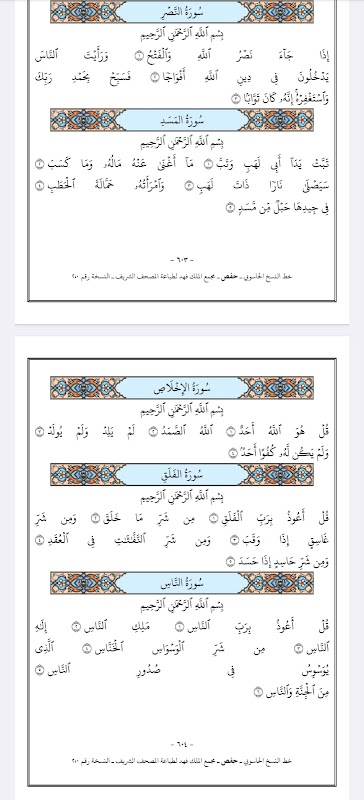 سُورَةُ النَّصْرِ
بِسْمِ ٱللَّهِ ٱلرَّحْمَٰنِ ٱلرَّحِيمِ
إِذَا جَآءَ نَصْرُ ٱللَّهِ وَٱلْفَتْحُ ١ وَرَأَيْتَ ٱلنَّاسَ
يَدْخُلُونَ فِى دِينِ ٱللَّهِ أَفْوَاجًا ٢ فَسَبِّحْ بِحَمْدِ رَبِّكَ
وَٱسْتَغْفِرْهُ إِنَّهُۥ كَانَ تَوَّابًۢا ٣
سُورَةُ المَسَدِ
بِسْمِ ٱللَّهِ ٱلرَّحْمَٰنِ ٱلرَّحِيمِ
تَبَّتْ يَدَآ أَبِى لَهَبٍ وَتَبَّ ١ مَآ أَغْنَىٰ عَنْهُ مَالُهُۥ وَمَا كَسَبَ ٢
سَيَصْلَىٰ نَارًا ذَاتَ لَهَبٍ ٣ وَٱمْرَأَتُهُۥ حَمَّالَةَ ٱلْحَطَبِ ٤
فِى جِيدِهَا حَبْلٌ مِّن مَّسَدٍۭ ٥
- ٦٠٣ -
خط النسخ الحاسوبي ـ حفص ـ مجمع الملك فهد لطباعة المصحف الشريف ـ النسخة رقم ٢٠
سُورَةُ الإِخْلَاصِ
بِسْمِ ٱللَّهِ ٱلرَّحْمَٰنِ ٱلرَّحِيمِ
قُلْ هُوَ ٱللَّهُ أَحَدٌ ١ ٱللَّهُ ٱلصَّمَدُ ٢ لَمْ يَلِدْ وَلَمْ يُولَدْ ٣
وَلَمْ يَكُن لَّهُۥ كُفُوًا أَحَدٌۢ ٤
سُورَةُ الفَلَقِ
بِسْمِ ٱللَّهِ ٱلرَّحْمَٰنِ ٱلرَّحِيمِ
قُلْ أَعُوذُ بِرَبِّ ٱلْفَلَقِ ١ مِن شَرِّ مَا خَلَقَ ٢ وَمِن شَرِّ
غَاسِقٍ إِذَا وَقَبَ ٣ وَمِن شَرِّ ٱلنَّفَّٰثَٰتِ فِى ٱلْعُقَدِ ٤
وَمِن شَرِّ حَاسِدٍ إِذَا حَسَدَ ٥
سُورَةُ النَّاسِ
بِسْمِ ٱللَّهِ ٱلرَّحْمَٰنِ ٱلرَّحِيمِ
قُلْ أَعُوذُ بِرَبِّ ٱلنَّاسِ ١ مَلِكِ ٱلنَّاسِ ٢ إِلَٰهِ
ٱلنَّاسِ ٣ مِن شَرِّ ٱلْوَسْوَاسِ ٱلْخَنَّاسِ ٤ ٱلَّذِى
يُوَسْوِسُ فِى صُدُورِ ٱلنَّاسِ ٥
مِنَ ٱلْجِنَّةِ وَٱلنَّاسِ ٦
- ٦٠٤ -
خط النسخ الحاسوبي ـ حفص ـ مجمع الملك فهد لطباعة المصحف الشريف ـ النسخة رقم ٢٠